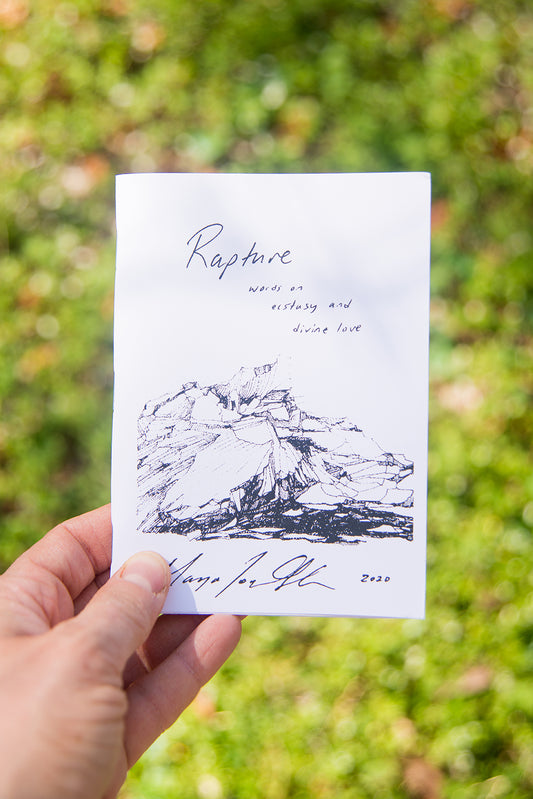 Rapture
words on
ecstasy and
divine love
2020